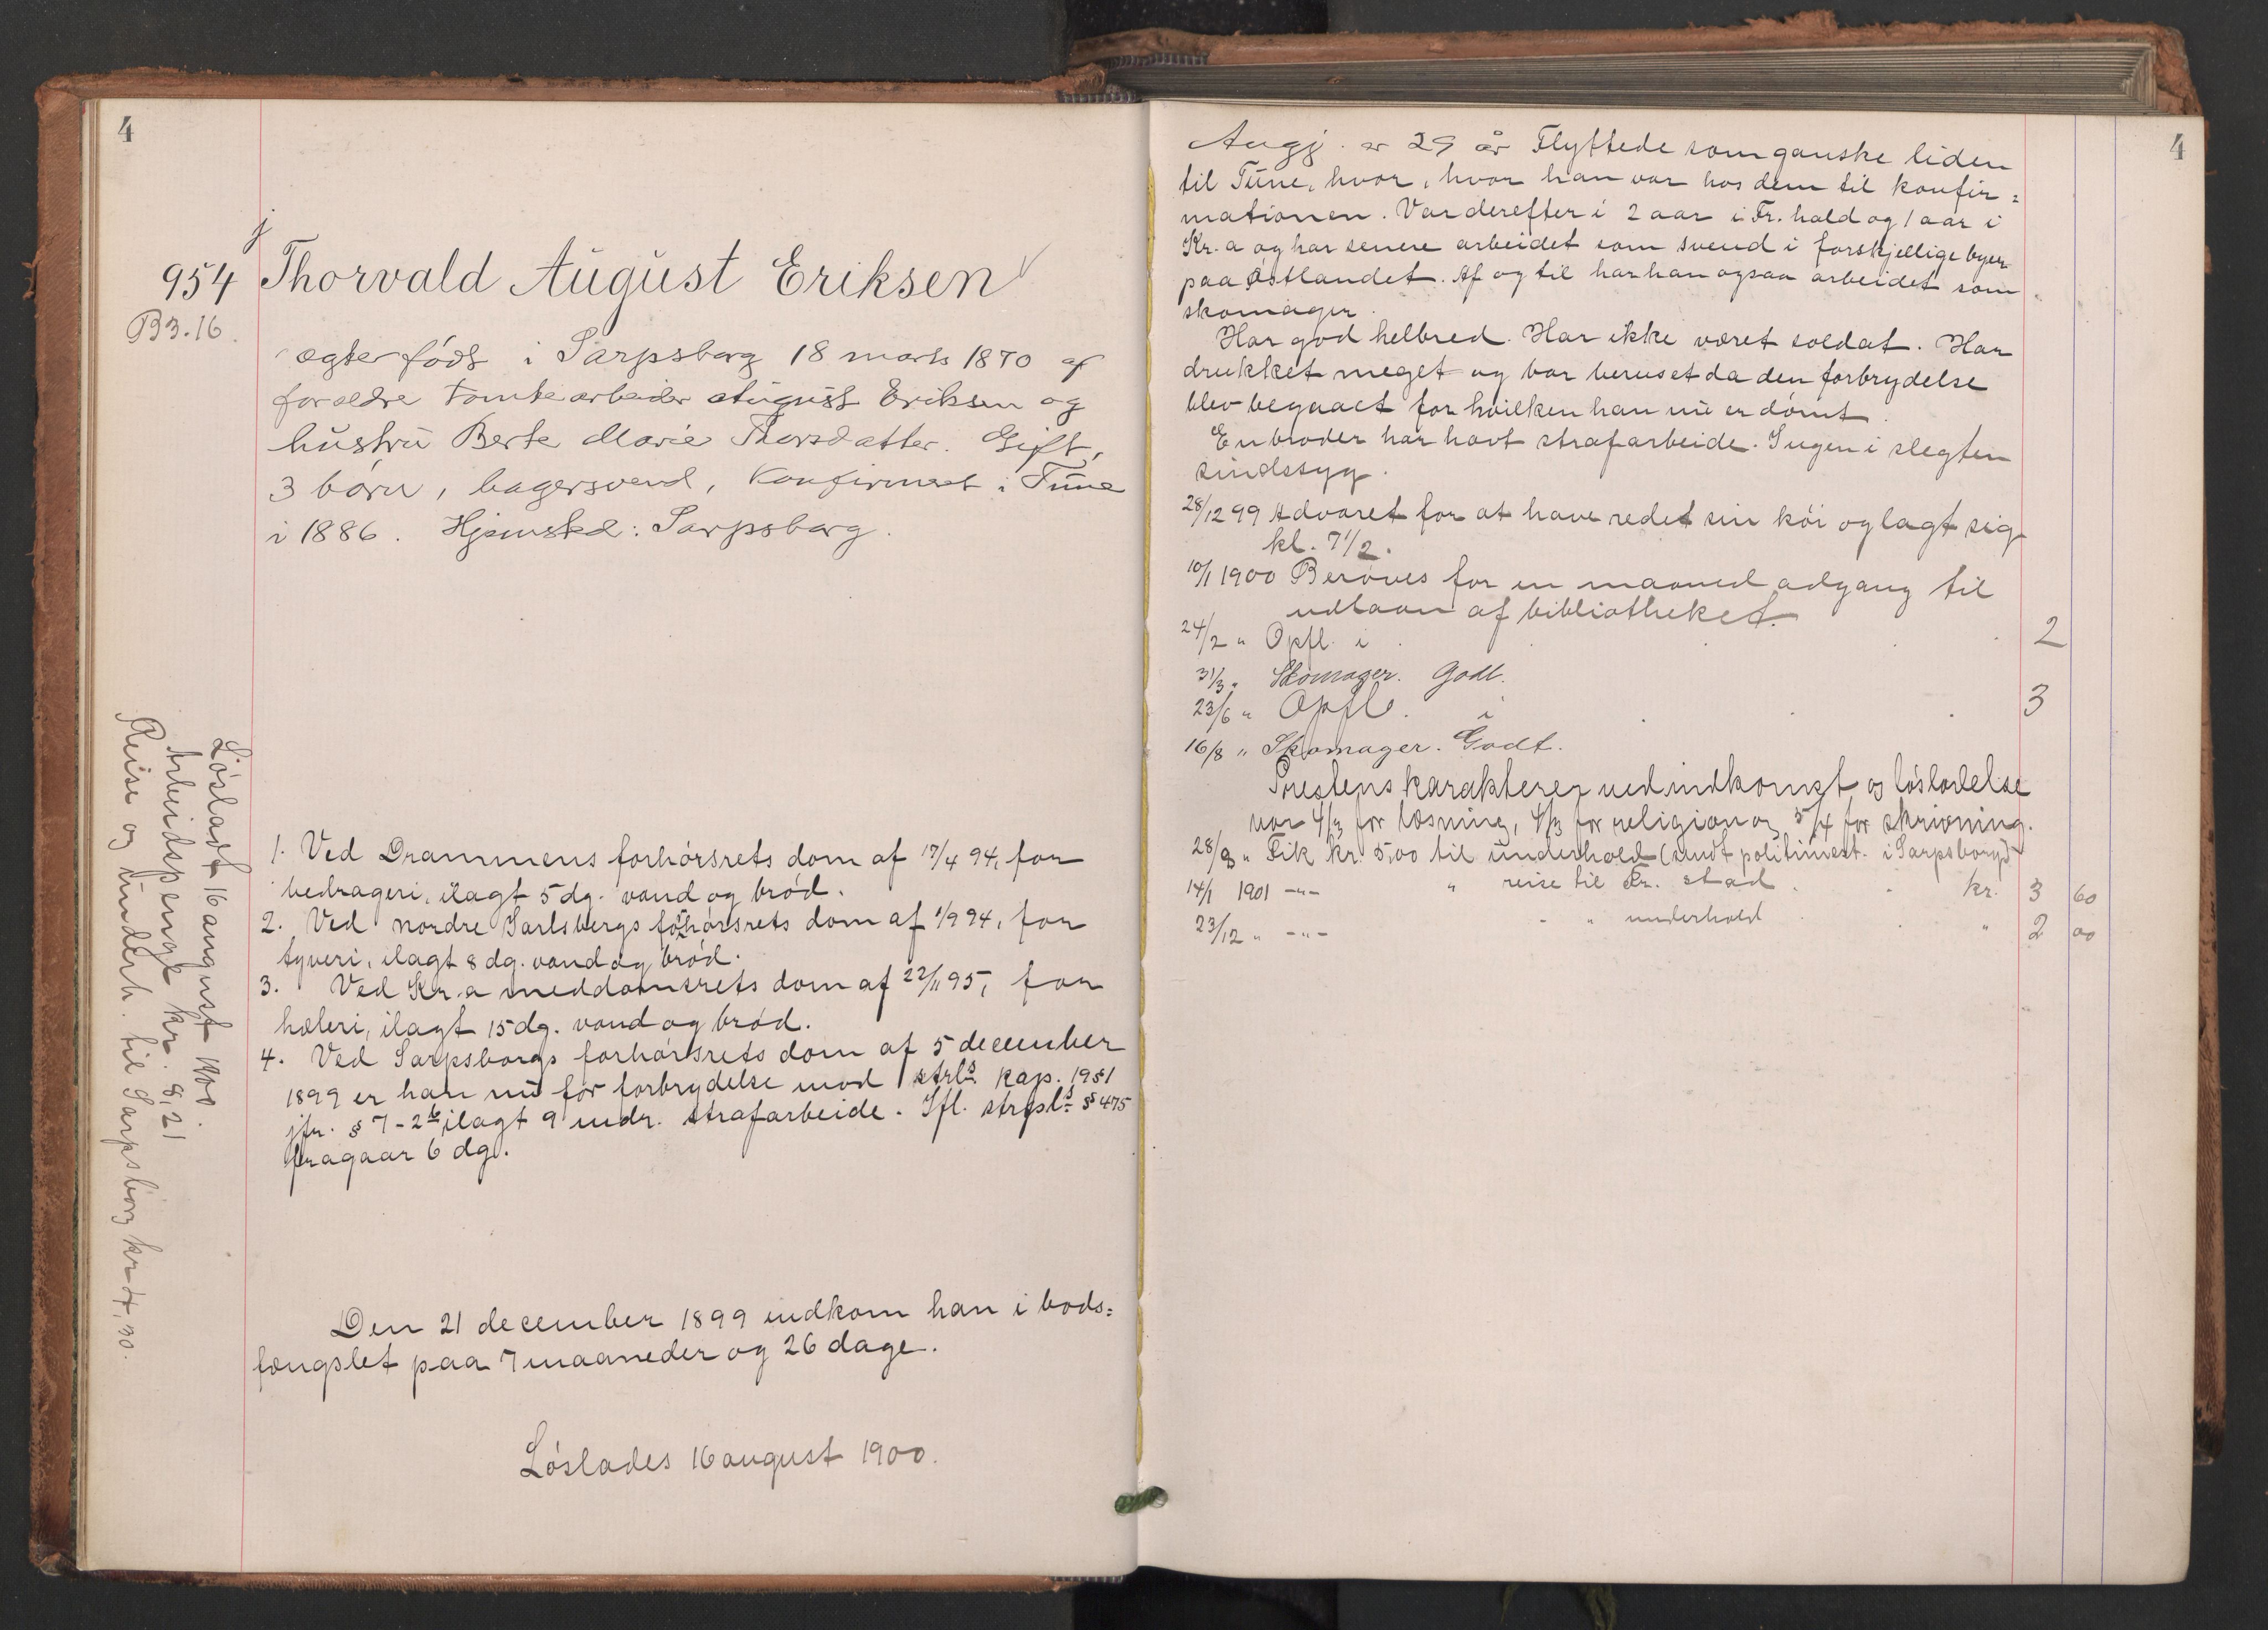 4
j
954 Thorvald August Eriksen
B3.16.
ægtefødt i Sarpsborg 18 marts 1870 af
forældre Tomtearbeider August Eriksen og
hustru Berte Marie Thorsdatter. Gift,
3 børn, bagersvend, Konfirmeret i Tune
i 1886. Hjemsted: Sarpsborg.
1. Ved Drammens forhørsrets dom af 17/4 94, for
bedrageri, ilagt 5 dg. vand og brød.
2. Ved nordre Jarlsbergs forhørsrets dom af 1/9 94, for
tyveri, ilagt 8 dg. vand og brød.
3. Ved Kr.a meddomsrets dom af 22/11 95, for
hæleri, ilagt 15 dg. vand og brød.
4. Ved Sarpsborgs forhørsrets dom af 5 december
1899 er han nu for forbrydelse mod strls. kap. 19 § 1
jfr. § 7 - 2 ilagt 9 mdr. strafarbeide. Ifl. strpls. § 475
fragaar 6 dg.
Den 21 december 1899 indkom han i bods=
fængslet paa 7 maaneder og 26 dage.
Løslades 16 august 1900.
Løsladt 16 august 1900.
Arbeidspenge kr. 8,21
Reise og underh. til Sarpsborg kr 4,30.
4
Angj. er 29 år Flyttede som ganske liden
til Tune, hvor, hvor han var hos dem til konfir=
mationen. Var derefter i 2 aar i Fr.hald og 1 aar i
Kr.a og har senere arbeidet som svend i forskjellige byer
paa Østlandet. Af og til har han ogsaa arbeidet som
skomager.
Har god helbred. Har ikke været soldat. Har
drukket meget og var beruset da den forbrydelse
blev begaaet for hvilken han nu er dømt.
En broder har havt strafarbeide. Ingen i slegten
sindssyg.
28/12 99 Advaret for at have redet sin køi og lagt sig
kl. 7 1/2.
10/1 1900 Berøves for en maaned adgang til
udlaan af bibliotheket.
24/2 " Opfl. i . . . 2
31/3 " Skomager. Godt.
23/6 " Opfl. i . . . 3
16/8 " Skomager. Godt.
Prestens karakterer ved indkomst og løsladelse
var 4/3 for læsning, 4/3 for religion og 5/4 for skrivning.
28/8 " Fik kr. 5,00 til underhold (sendt politimest. i Sarpsborg)
14/1 1901 -"- " reise til Fr. stad . . kr. 3 60
23/12 " -"- - " underhold . . " 2 00